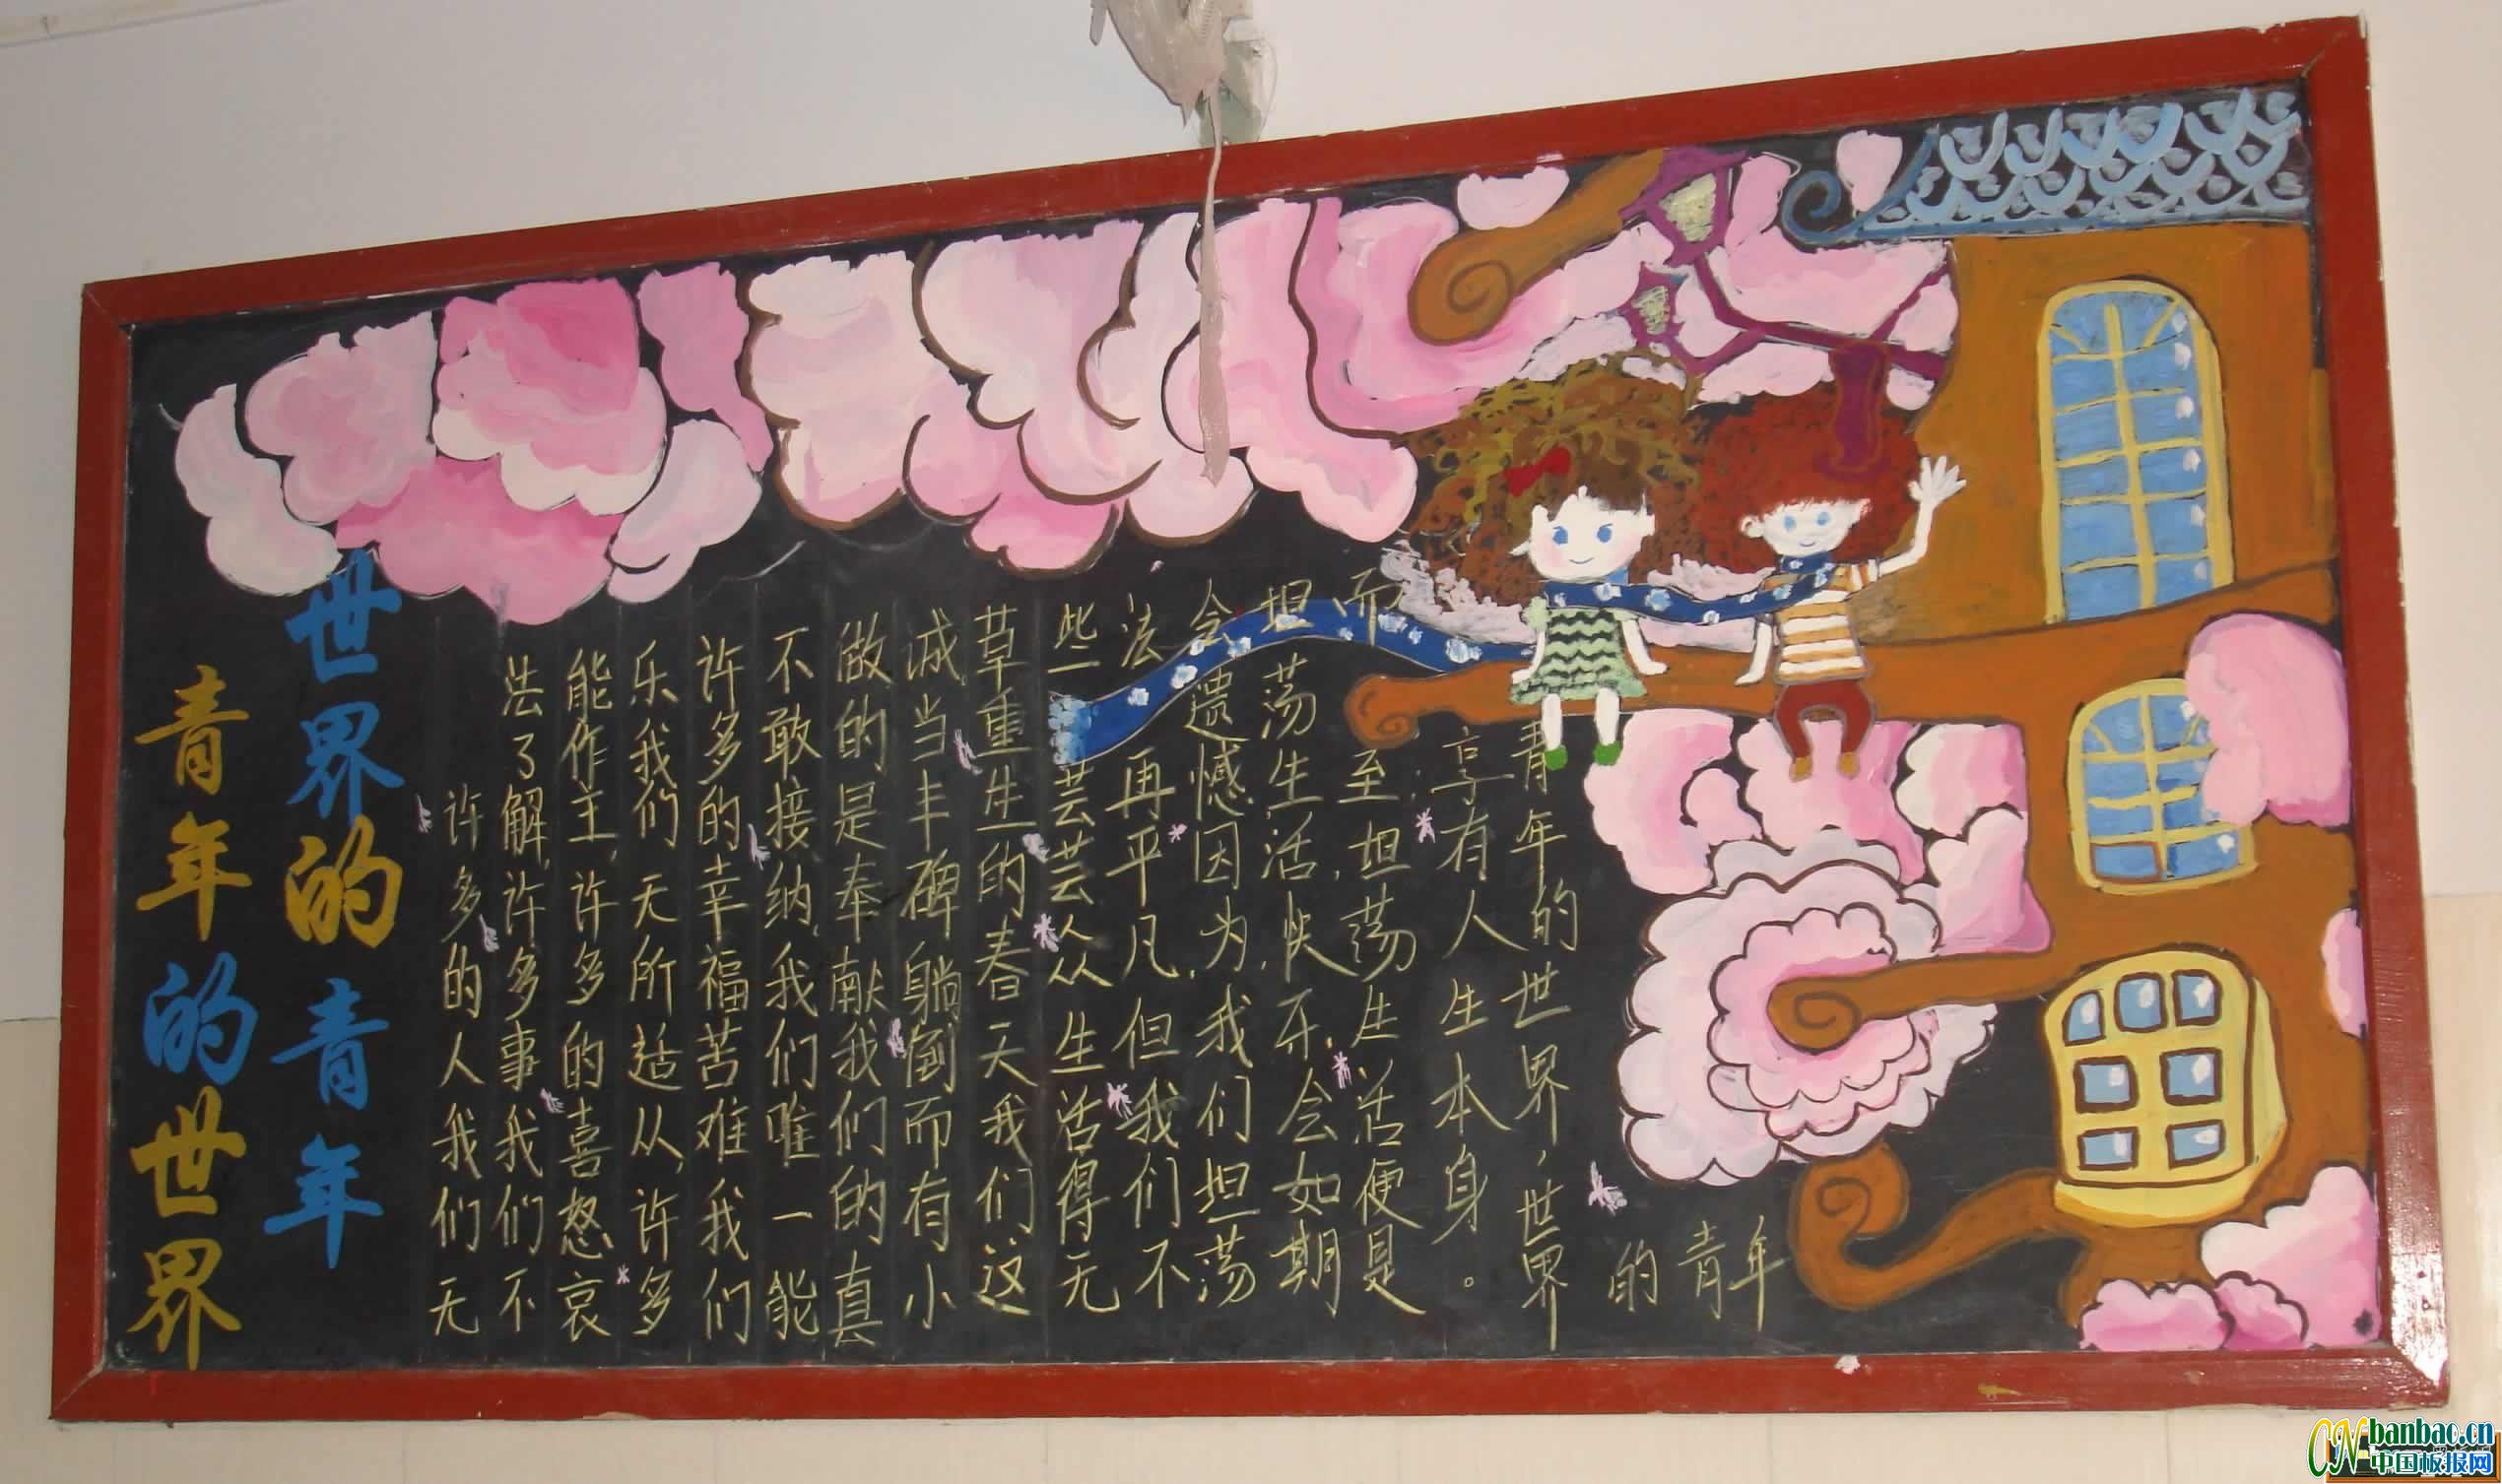 青年的世界
世界的青年
许多的人我们无
法了解,许多事我们不
能作主,许多的喜怒哀
乐我们无所适从,许多
许多的幸福苦难我们
不敢接纳,我们唯一能
做的是奉献我们的真
诚当丰碑躺倒而有小
草重生的春天我们这
些芸芸众生活得无
法再平凡,但我们不
会遗憾因为,我们坦荡
坦荡生活,快乐,会如期
而至坦荡生活便是
享有人生本身。
青年的世界,世界
的青年
CN banbao.cn
中国板报网